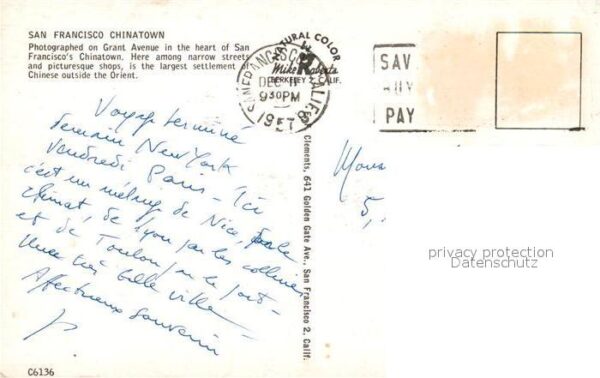 SAN FRANCISCO CHINATOWN
Photographed on Grant Avenue in the heart of San
Francisco's Chinatown. Here among narrow streets
and picturesque shops, is the largest settlement of
Chinese outside the Orient.
NATURAL COLOR
Mike Roberts
BERKELEY 2, CALIF.
SAN FRANCISCO CALIF
DEC 11
930PM
1957
SAV
PAY
Clements, 641 Golden Gate Ave., San Francisco 2, Calif.
Voyage terminé
demain New York
Vendredi Paris - Ici
c'est un mélange de Nice, par le
climat, de Lyon par les collines
et de Toulon, par le port -
Une très belle ville -
Affectueux Souvenir
Mons
5,
privacy protection
Datenschutz
C6136